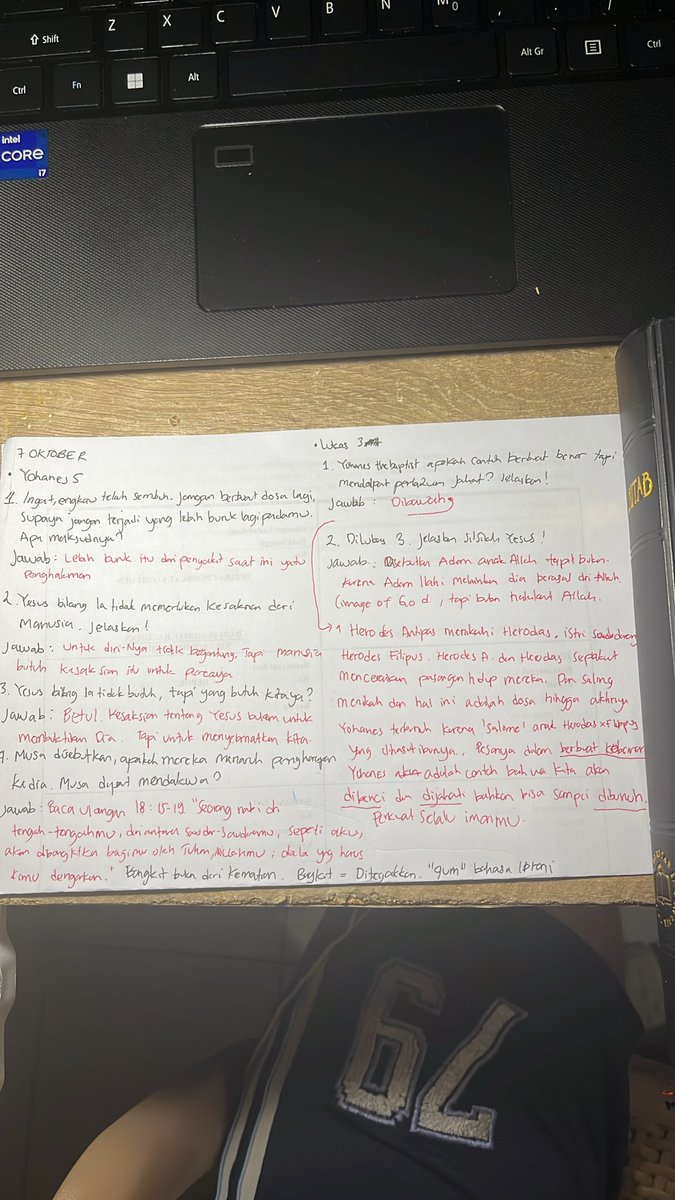 Shift
Z
X
C
V
B
N
M
0
Ctrl
Fn
Alt
Alt Gr
Ctrl
intel
CORe
i7
7 OKTOBER
• Yohanes 5
1. Ingat, engkau telah sembuh. Jangan berbuat dosa lagi,
supaya jangan terjadi yang lebih buruk lagi padamu.
Apa maksudnya?
Jawab: Lebih buruk itu dari penyakit saat ini yaitu
Penghakiman
2. Yesus bilang Ia tidak memerlukan kesaksian dari
Manusia. Jelaskan!
Jawab: Untuk diri-Nya tidak bergantung. Tapi manusia
butuh kesaksian itu untuk percaya
3. Yesus bilang Ia tidak butuh, tapi yang butuh kitaya?
Jawab: Betul. Kesaksian tentang Yesus bukan untuk
membuktikan Dia. Tapi untuk menyelamatkan kita.
4. Musa disebutkan, apakah mereka menaruh pengharapan
ke dia. Musa dapat mendakwa?
Jawab: Baca Ulangan 18:15-19 "Seorang nabi dri
tengah-tengahmu, dari antara saudara-saudaramu, seperti aku,
akan dibangkitkan bagimu oleh Tuhan, Allahmu; dialah yng harus
kamu dengarkan." Bangkit bukan dari kematian. Bangkit = Ditegakkan. "qum" bahasa Ibrani
• Lukas 3
1. Yohanes the baptist apakah contoh berbuat benar tapi
mendapat perlakuan jahat? Jelaskan!
Jawab: Dibawah
2. Di lukas 3. Jelaskan silsilah Yesus!
Jawab: Disebutkan Adam anak Allah tapi bukan
karena Adam Ilahi melainkan dia berasal dri Allah.
(image of God, tapi bukan hakikat Allah.
→ 1 Herodes Antipas menikahi Herodias, istri saudaranya
Herodes Filipus. Herodes A. dan Herodias sepakat
menceraikan pasangan hidup mereka. Dan saling
menikah dan hal ini adalah dosa hingga akhirnya
Yohanes terbunuh karena 'Salome' anak Herodias x Filipus
yang dihasut ibunya. Pesannya dalam berbuat kebenaran
Yohanes adalah contoh bahwa kita akan
dibenci dan dijahati bahkan bisa sampai dibunuh.
Perkuat selalu imanmu.
KITAB
79